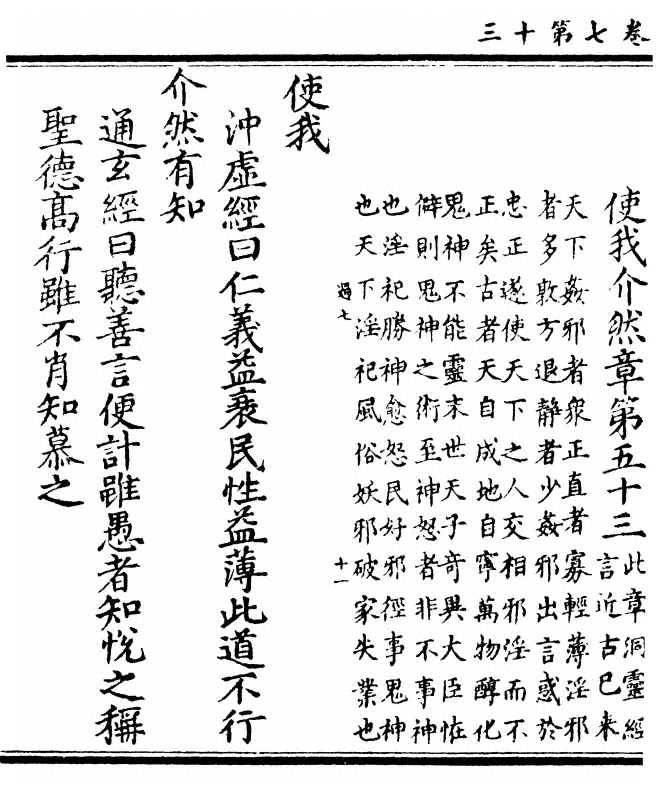 卷七第十三
使我介然章第五十三
此章洞靈經
言近古已来
天下姦邪者衆正直者寡輕薄淫邪
者多敦方退静者少姦邪出言惑於
忠正遂使天下之人交相邪淫而不
正矣古者天自成地自寧萬物醇化
鬼神不能靈末世天子奇異大臣恠
僻則鬼神之術至神怒者非不事神
也淫祀勝神愈怒民好邪徑事鬼神
也天下淫祀風俗妖邪破家失業也
過七
十一
使我
沖虛經曰仁義益衰民性益薄此道不行
介然有知
通玄經曰聽善言便計雖愚者知悅之稱
聖德高行雖不肖知慕之